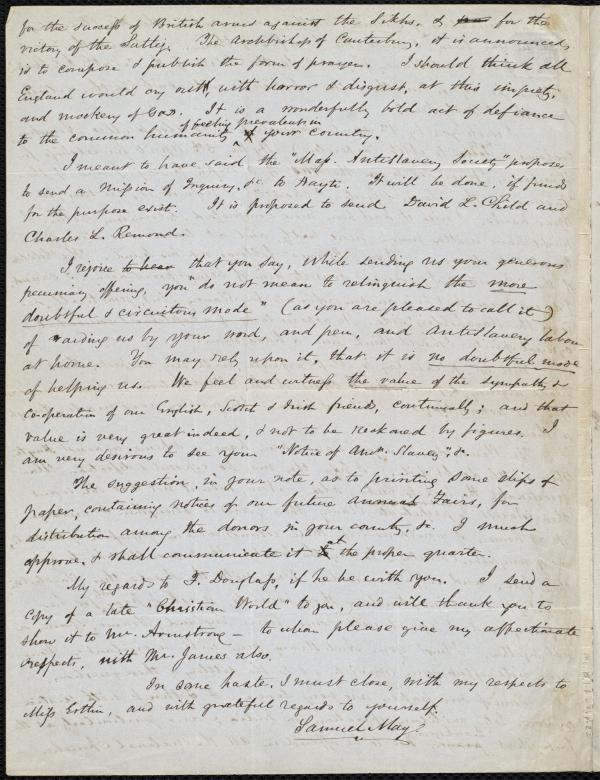 for the success of British arms against the Sikhs, & for the
victory of the Sutlej. The Archbishop of Canterbury, it is announced,
is to compose & publish the form of prayer. I should think all
England would cry out, with horror & disgust, at this impiety,
and mockery of God. It is a wonderfully bold act of defiance
of feeling prevalent in
to the common humanity of your country.
I meant to have said the "Mass. Antislavery Society" proposes
to send a Mission of Inquiry, &c. to Hayti. It will be done, if funds
for the purpose exist. It is proposed to send David L. Child and
Charles L. Remond.
I rejoice to hear that you say, while sending us your generous
pecuniary offering, you "do not mean to relinquish the more
doubtful & circuitous mode" (as you are pleased to call it)
of aiding us by your word, and pen, and antislavery labour
at home. You may rely upon it, that it is no doubtful mode
of helping us. We feel and witness the value of the sympathy &
co-operation of our English, Scotch & Irish friends, continually; and that
value is very great indeed, & not to be reckoned by figures. I
am very desirous to see your "Notice of Amn. Slavery" &c.
The suggestion, in your note, as to printing some slips of
paper, containing notices of our future annual Fairs, for
distribution among the donors in your county, &c. I much
approve, & shall communicate it at the proper quarter.
My regards to F. Douglass, if he be with you. I send a
copy of a late "Christian World" to you, and will thank you to
show it to Mr. Armstrong – to whom please give my affectionate
respects, with Mr. James also.
In some haste, I must close, with my respects to
Miss Estlin, and with grateful regards to yourself.
Samuel May Jr.